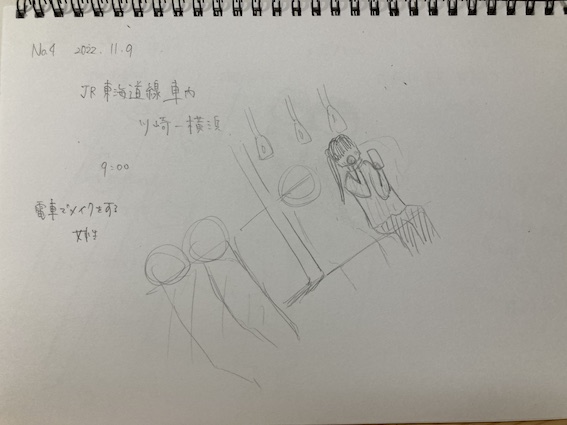 No.4 2022.11.9
JR 東海道線 車内
川崎ー横浜
9:00
電車でメイクをする
女性